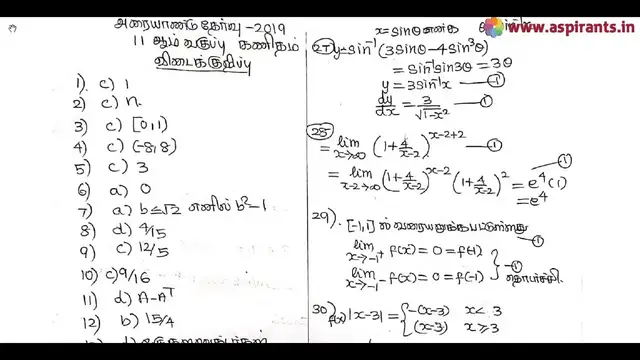 அரையாண்டுதேர்வு - 2019
11 ஆம் வகுப்பு கணிதம்
விடைக்குறிப்பு
1). c) 1
2) c) n.
3) c) [0,1)
4) c) (-8,8)
5) c) 3
6) a) 0
7) a) b≤√2 எனில் b²-1
8) d) 4/15
9) c) 12/5
10) c) 9/16
11) d) A-Aᵀ
12) b) 15/4
www.aspirants.in
x = sinθ என்க
27) y = sin⁻¹(3sinθ - 4sin³θ)
= sin⁻¹ sin3θ = 3θ
y = 3sin⁻¹x —①
dy/dx = 3/√(1-x²) —①
28)
= lim x→∞ (1+4/(x-2))^(x-2+2) —①
= lim x-2→∞ (1+4/(x-2))^(x-2) (1+4/(x-2))² = e⁴(1) —①
= e⁴
29). [-1,1] ல் வரையறுக்கப்பட்டுள்ளது
lim x→-1⁺ f(x) = 0 = f(-1) —①
lim x→-1⁻ f(x) = 0 = f(-1) —①
தொடர்ச்சி.
30) f(x) |x-3| = { -(x-3) x < 3
(x-3) x ≥ 3